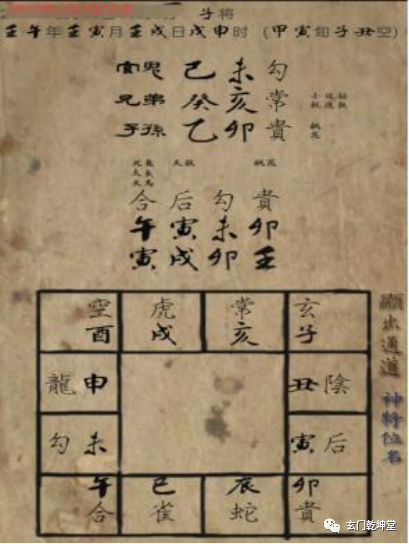 子将
壬午年壬寅月壬戌日戊申时 (甲寅旬子丑空)
官鬼 己 未 勾
兄弟 癸 亥 常
子孫 乙 卯 貴
桃花
桃花
合 后 勾 貴
午 寅 未 卯
寅 戌 卯 壬
空 虎 常 玄
酉 戌 亥 子
龍 申 丑 陰
勾 未 寅 后
午 巳 辰 卯
合 雀 蛇 貴
顯出通道 神將位名
玄门乾坤堂